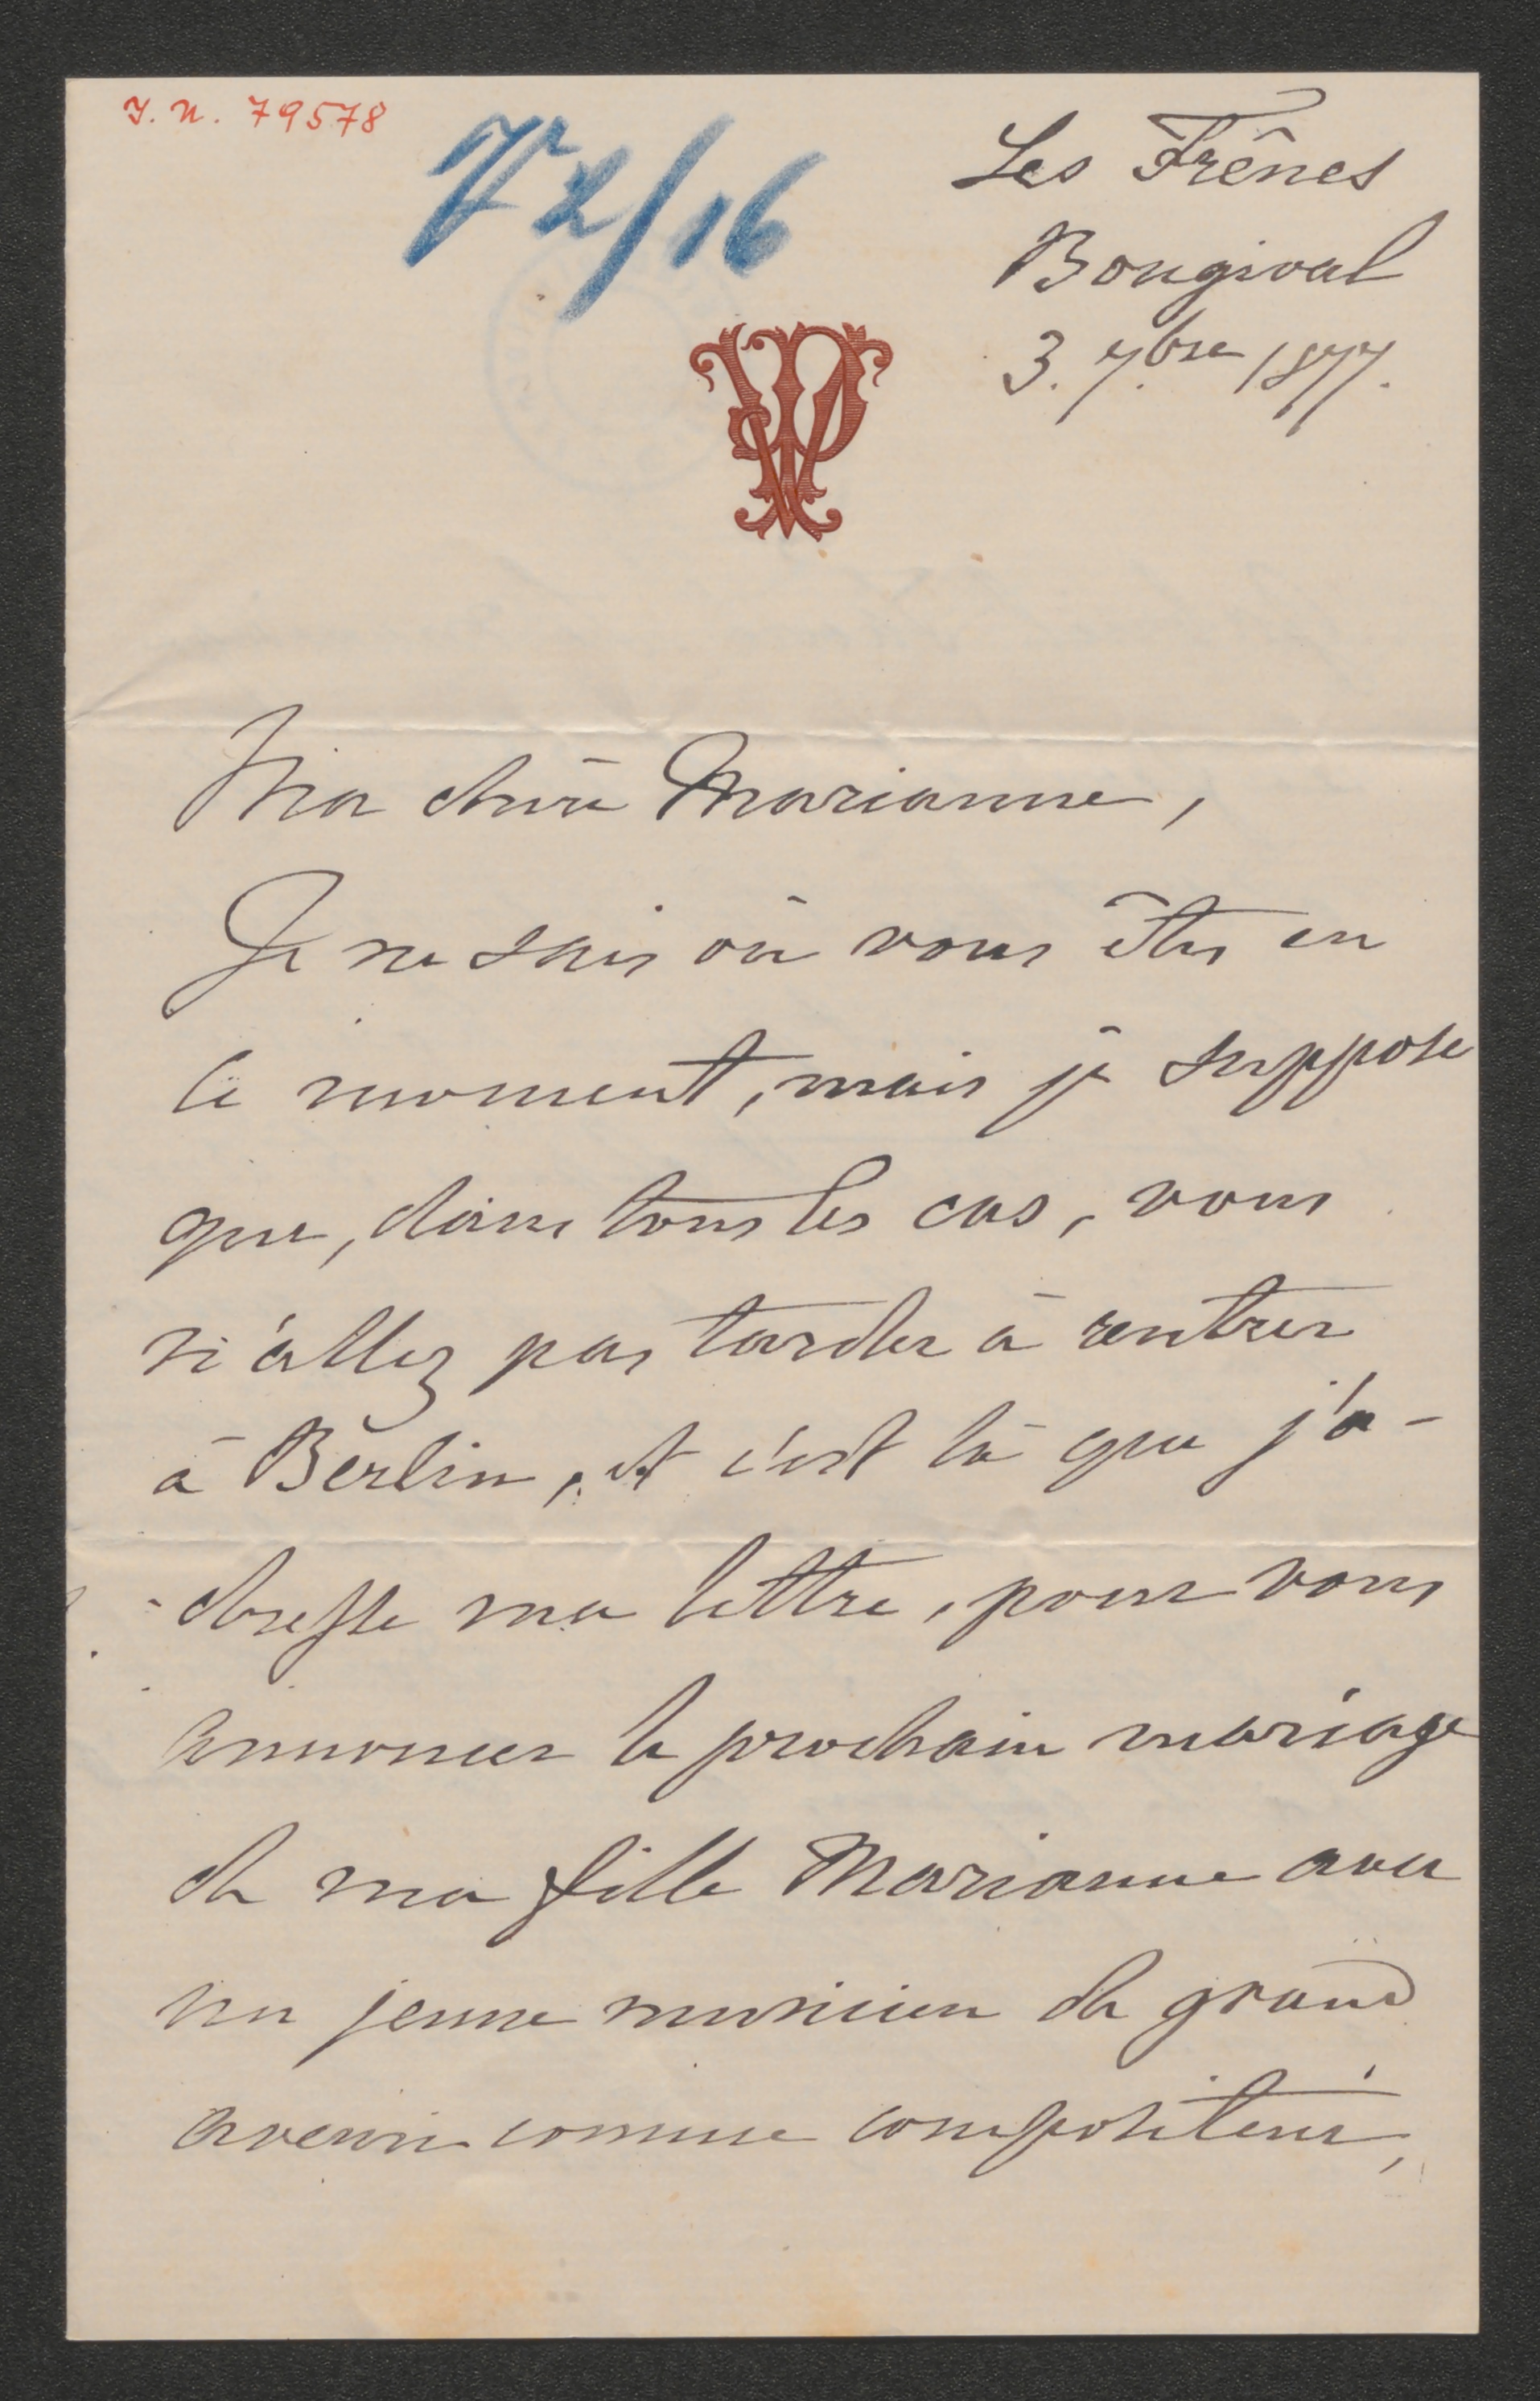 I. N. 79578
72/16
Les Frênes
Bougival
3. 7bre 1877.
Ma chère Marianne,
Je ne sais où vous êtes en
ce moment, mais je suppose
que, dans tous les cas, vous
n'allez pas tarder à rentrer
à Berlin, et c'est là que j'a-
-dresse ma lettre, pour vous
annoncer le prochain mariage
de ma fille Marianne avec
un jeune musicien de grand
avenir comme compositeur,